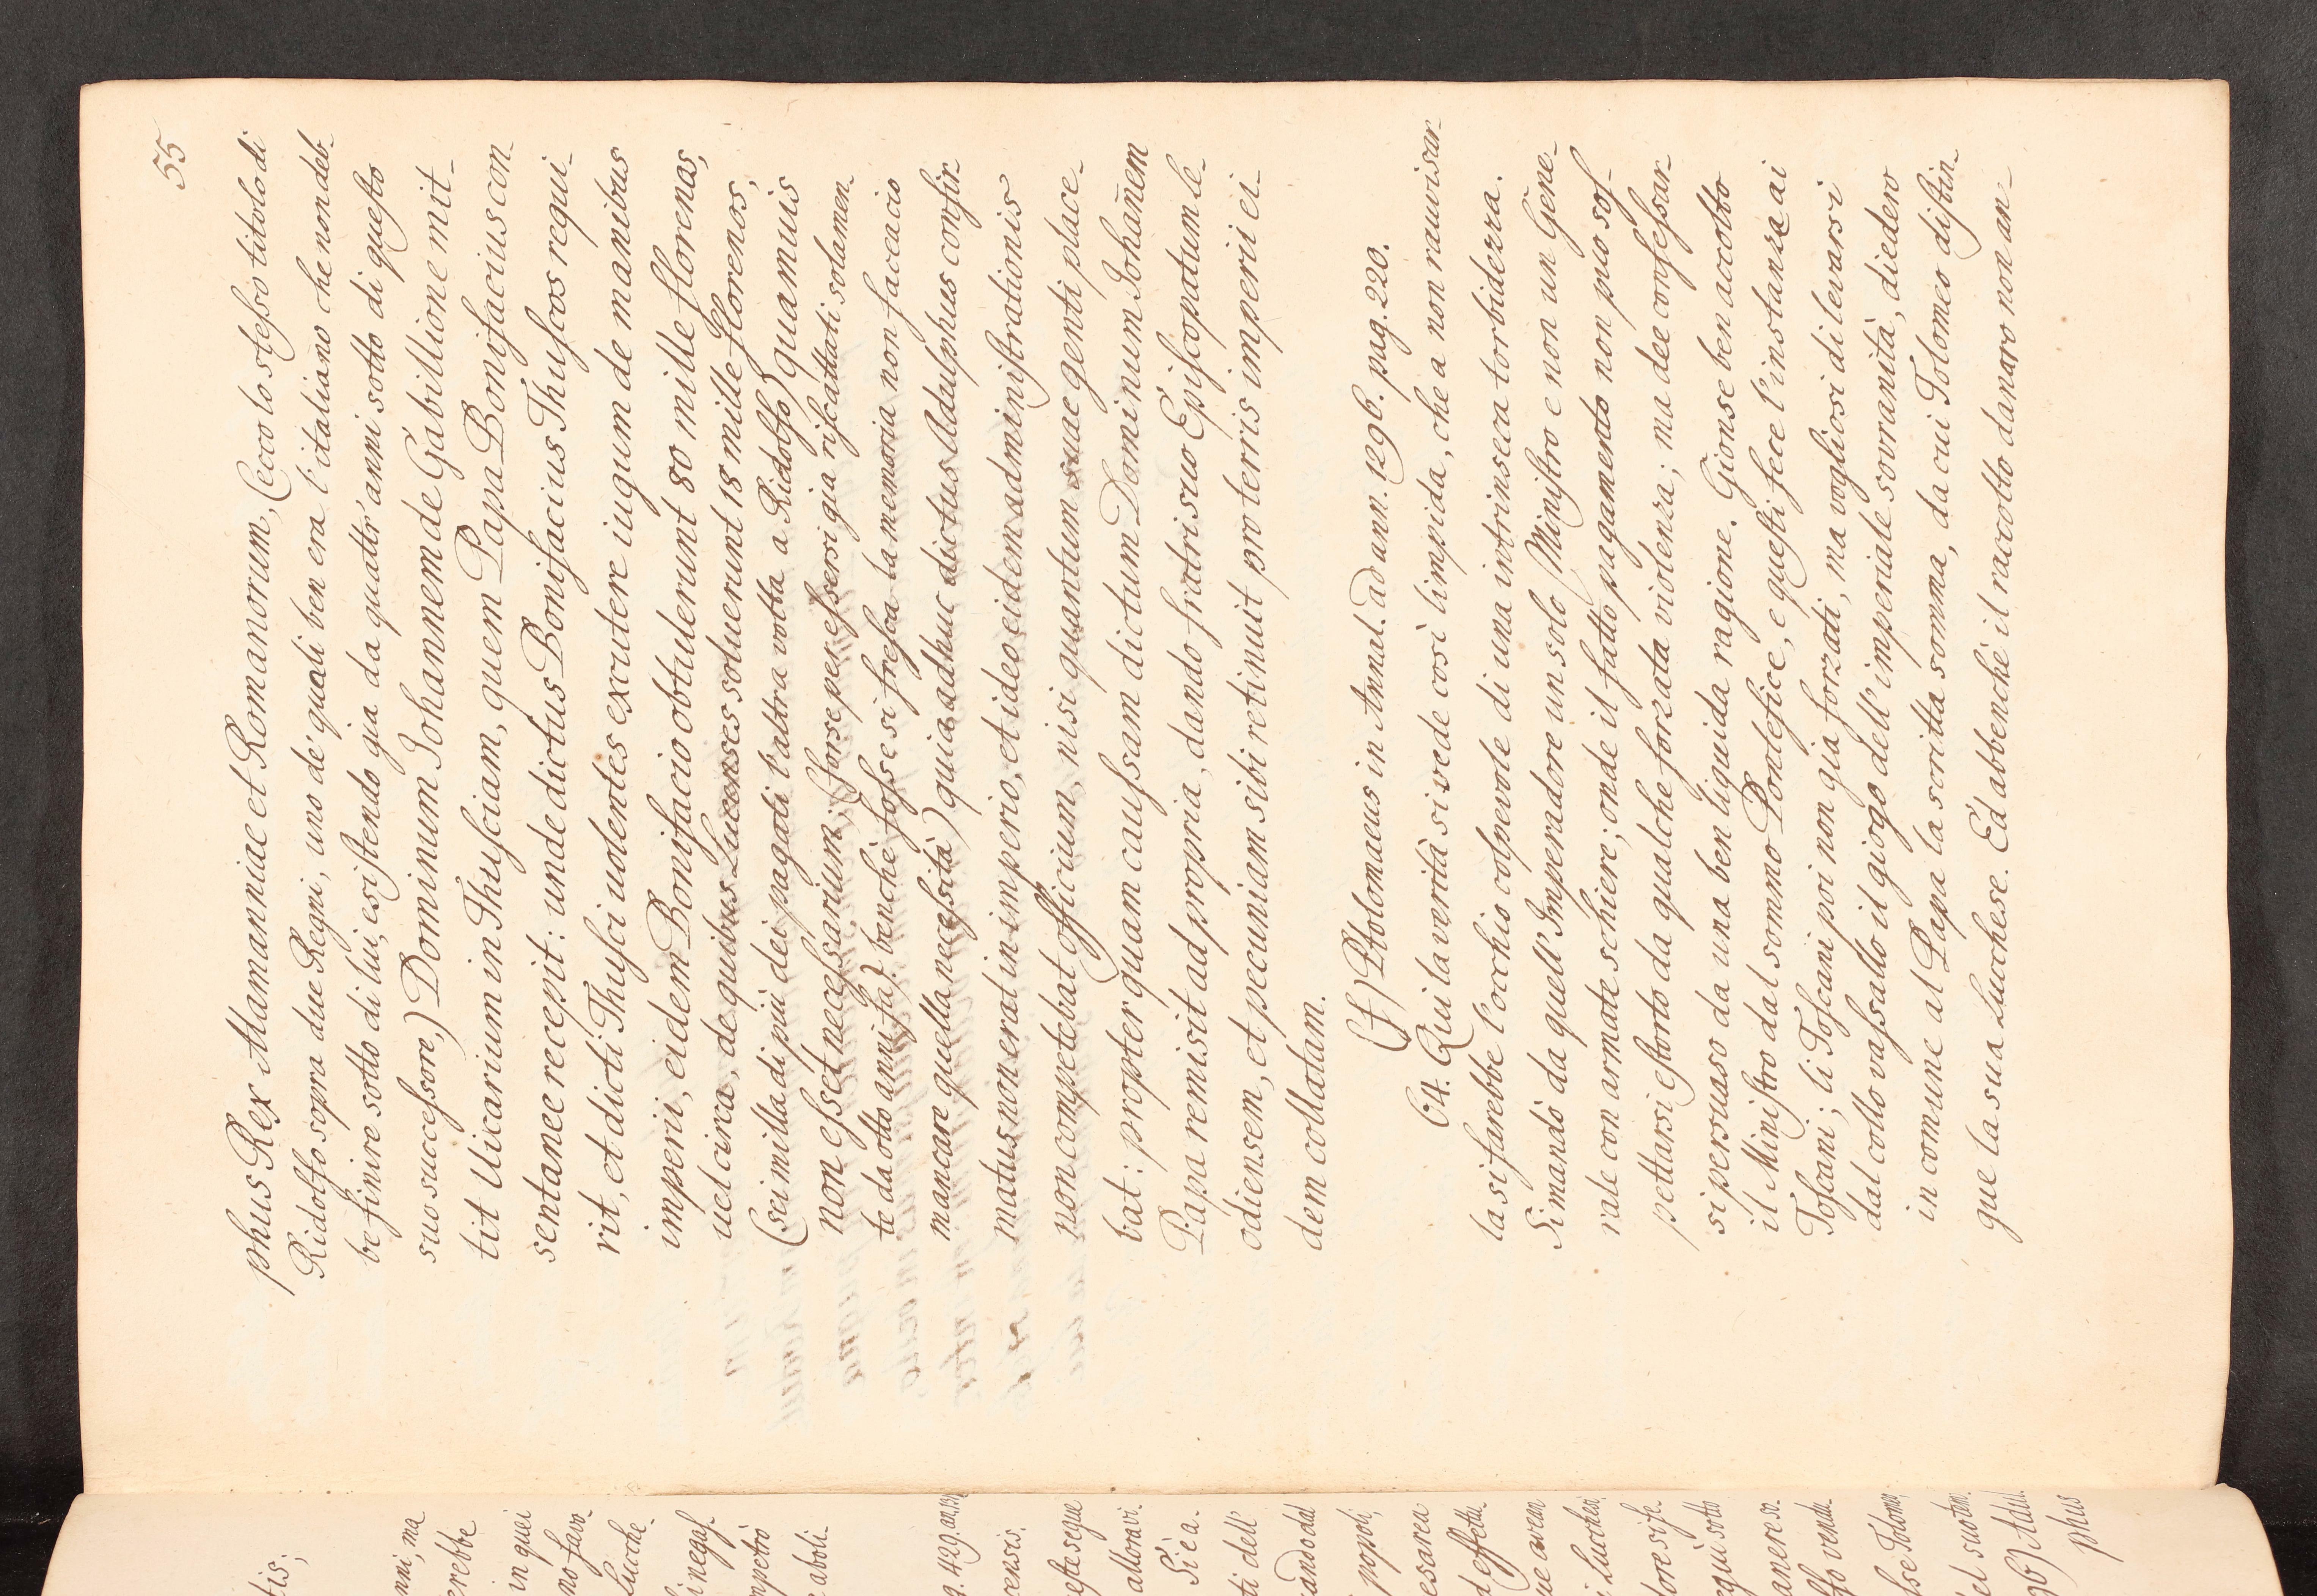 55
phus Rex Alamanniae et Romanorum, (ecco lo stesso titolo di
Ridolfo sopra due Regni, uno de' quali ben era l'italiano che non deb-
be finire sotto di lui, esistendo gia da quattr'anni sotto di questo
suo successore,) Dominum Johannem de Gabillione mit-
tit Uicarium in Thusciam, quem Papa Bonifacius con-
sentanee recepit: unde dictus Bonifacius Thuscos requi-
rit, et dicti Thusci uolentes excutere iugum de manibus
imperii, eidem Bonifacio obtulerunt 80 mille florenas,
uel circa, de quibus Lucenses soluerunt 18 mille florenos,
(sei milla di più dei pagati l'altra volta a Ridolfo) quamuis
non esset necessarium; (forse per essersi gia riscattati solamen-
te da otto anni fa? benchè fosse si fresca la memoria non faccacio
mancare quella necessità) quia adhuc dictus Adulphus confir-
matus non erat in imperio, et ideo eidem administrationis
non competebat officium, nisi quantum suae genti place-
bat: propter quam caussam dictum Dominum Johañem
Papa remisit ad propria, dando fratri suo Episcopatum le-
odiensem, et pecuniam sibi retinuit pro terris imperii ei-
dem collatam.
(f) Ptolomaeus in Annal. ad ann. 1296. pag. 220.
64. Qui la verità si vede così limpida, che a non rauvisar-
la si farebbe l'occhio colpevole di una intrinseca torbidezza.
Si mandò da quell' Imperadore un solo Ministro e non un Gene-
rale con armate schiere; onde il fatto pagamento non può sos-
pettarsi estorto da qualche forzata violenza; ma dee confessar-
si persuaso da una ben liquida ragione. Gionse ben accolto
il Ministro dal sommo Pontefice, e questi fece l'instanza ai
Toscani; li Toscani poi non gia forzati, ma vogliosi di levarsi
dal collo vassallo il giogo dell' imperiale sovranità, diedero
in comune al Papa la scritta somma, da cui Tolomeo distin-
gue la sua Lucchese. Ed abbenchè il raccolto danaro non an-
tis;
nni, ma
erebbe
in quei
no favo-
Lucche-
i negas-
mpetrò
aboli.
g. 429. an. 13
censis.
segue
allora vi
Si è a-
ti dell'
ando dal
popoli,
esarea
d effettu-
ue aven
i Lucchesi
qui sotto
anere se-
lfo vendu-
lse Tolome
el suo tem
96) Adul-
phus